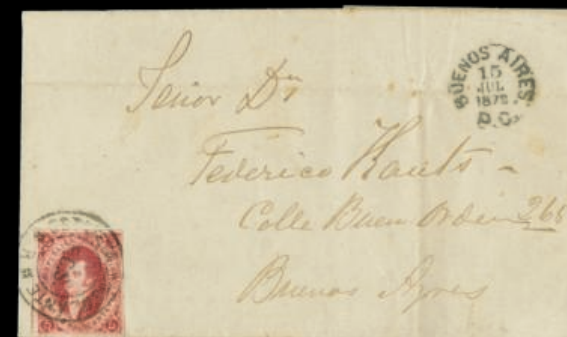 BUENOS AIRES
15
JUL
1872
P.C.
Señor Dn
Federico Kauts -
Calle Buen Orden 268
Buenos Ayres
5 5